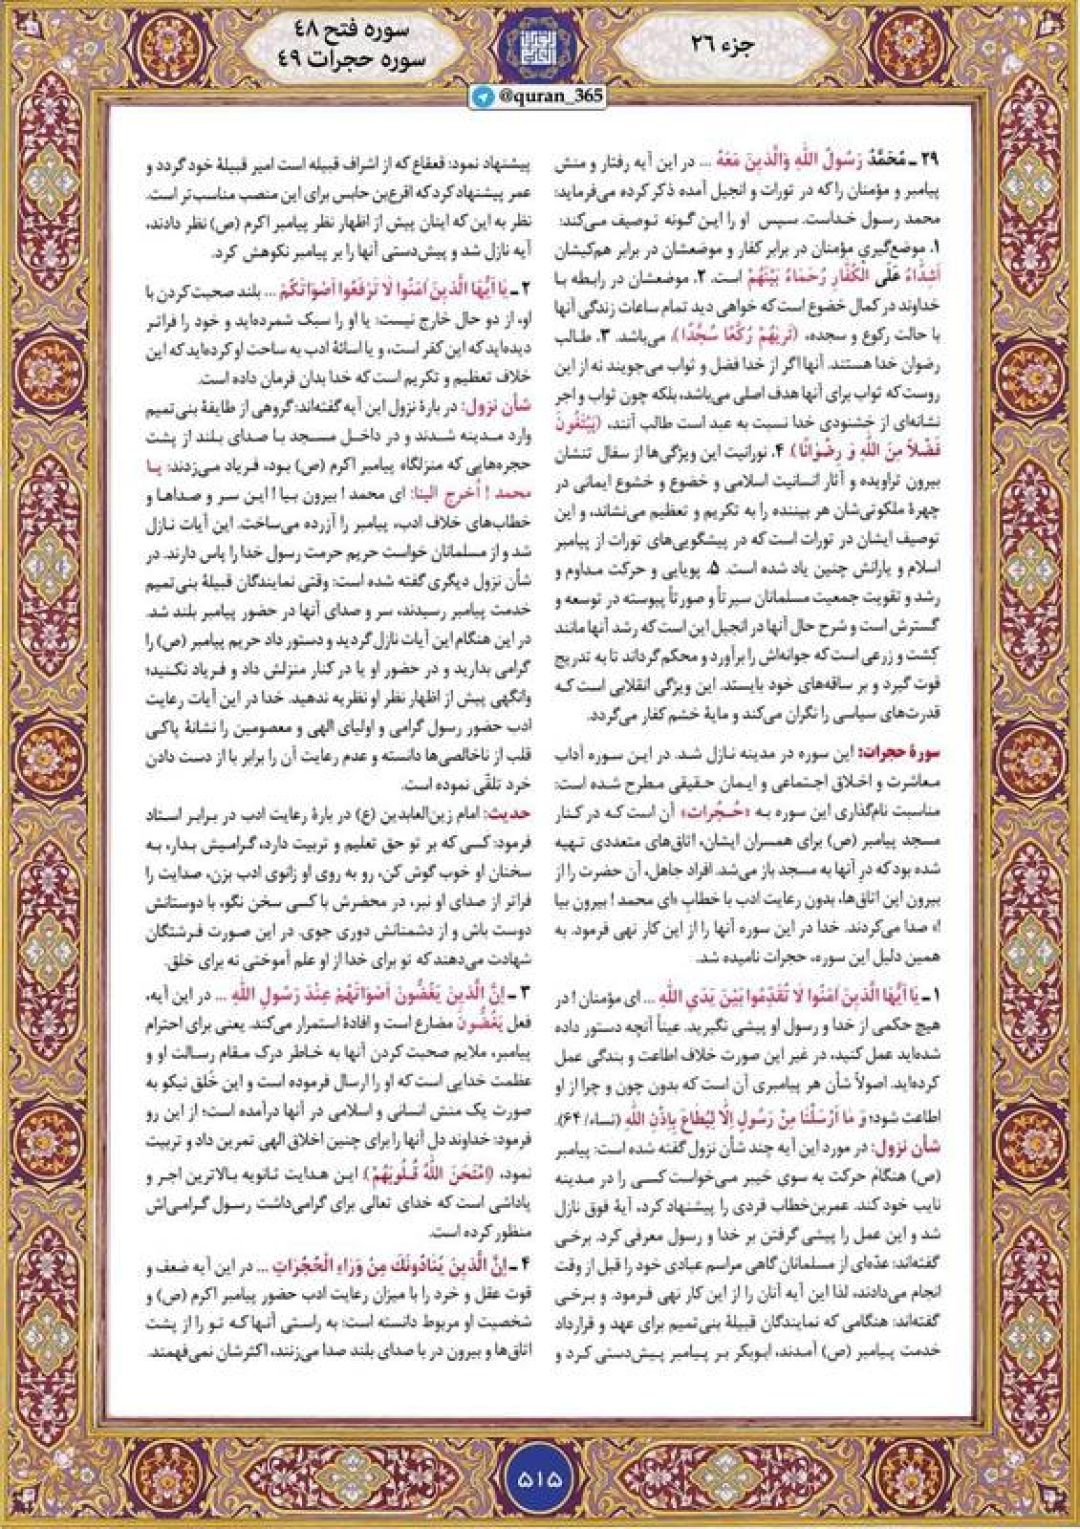 جزء ۲۶
سوره فتح ۴۸
سوره حجرات ۴۹
@quran_365
۲۹ـ مُحَمَّدٌ رَسُولُ اللهِ وَالَّذِينَ مَعَهُ ... در این آیه رفتار و منش
پیامبر و مؤمنان را که در تورات و انجیل آمده ذکر کرده می‌فرماید:
محمد رسول خداست. سپس او را این گونه توصیف می‌کند:
۱. موضع‌گیری مؤمنان در برابر کفار و موضعشان در برابر هم‌کیشان
أَشِدَّاءُ عَلَى الْكُفَّارِ رُحَمَاءُ بَيْنَهُمْ است. ۲. موضعشان در رابطه با
خداوند در کمال خضوع است که خواهی دید تمام ساعات زندگی آنها
با حالت رکوع و سجده، (تَرَيهُمْ رُكَّعًا سُجَّدًا)، می‌باشد. ۳. طالب
رضوان خدا هستند. آنها اگر از خدا فضل و ثواب می‌جویند نه از این
روست که ثواب برای آنها هدف اصلی می‌باشد، بلکه چون ثواب و اجر
نشانه‌ای از خشنودی خدا نسبت به عبد است طالب آنند، (يَبْتَغُونَ
فَضْلاً مِنَ اللهِ وَ رِضْوَانًا). ۴. نورانیت این ویژگی‌ها از سفال تنشان
بیرون تراویده و آثار انسانیت اسلامی و خضوع و خشوع ایمانی در
چهرهٔ ملکوتی‌شان هر بیننده را به تکریم و تعظیم می‌نشاند، و این
توصیف ایشان در تورات است که در پیشگویی‌های تورات از پیامبر
اسلام و یارانش چنین یاد شده است. ۵. پویایی و حرکت مداوم و
رشد و تقویت جمعیت مسلمانان سیرتاً و صورتاً پیوسته در توسعه و
گسترش است و شرح حال آنها در انجیل این است که رشد آنها مانند
کِشت و زرعی است که جوانه‌اش را برآورد و محکم گرداند تا به تدریج
قوت گیرد و بر ساقه‌های خود بایستد. این ویژگی انقلابی است که
قدرت‌های سیاسی را نگران می‌کند و مایهٔ خشم کفار می‌گردد.
سورهٔ حجرات: این سوره در مدینه نازل شد. در این سوره آداب
معاشرت و اخلاق اجتماعی و ایمان حقیقی مطرح شده است:
مناسبت نام‌گذاری این سوره به «حُجُرات» آن است که در کنار
مسجد پیامبر (ص) برای همسران ایشان، اتاق‌های متعددی تهیه
شده بود که درِ آنها به مسجد باز می‌شد. افراد جاهل، آن حضرت را از
بیرون این اتاق‌ها، بدون رعایت ادب با خطاب «ای محمد! بیرون بیا
!» صدا می‌کردند. خدا در این سوره آنها را از این کار نهی فرمود. به
همین دلیل این سوره، حجرات نامیده شد.
۱ـ يَا أَيُّهَا الَّذِينَ آمَنُوا لَا تُقَدِّمُوا بَيْنَ يَدَيِ اللهِ ... ای مؤمنان! در
هیچ حکمی از خدا و رسول او پیشی نگیرید. عیناً آنچه دستور داده
شده‌اید عمل کنید، در غیر این صورت خلاف اطاعت و بندگی عمل
کرده‌اید. اصولاً شأن هر پیامبری آن است که بدون چون و چرا از او
اطاعت شود؛ وَ مَا أَرْسَلْنَا مِنْ رَسُولٍ إِلَّا لِيُطَاعَ بِإِذْنِ اللهِ (نساء/ ۶۴).
شأن نزول: در مورد این آیه چند شأن نزول گفته شده است: پیامبر
(ص) هنگام حرکت به سوی خیبر می‌خواست کسی را در مدینه
نایب خود کند. عمربن‌خطاب فردی را پیشنهاد کرد، آیهٔ فوق نازل
شد و این عمل را پیشی گرفتن بر خدا و رسول معرفی کرد. برخی
گفته‌اند: عدّه‌ای از مسلمانان گاهی مراسم عبادی خود را قبل از وقت
انجام می‌دادند، لذا این آیه آنان را از این کار نهی فرمود. و برخی
گفته‌اند: هنگامی که نمایندگان قبیلهٔ بنی‌تمیم برای عهد و قرارداد
خدمت پیامبر (ص) آمدند، ابوبکر بر پیامبر پیش‌دستی کرد و
پیشنهاد نمود: قعقاع که از اشراف قبیله است امیر قبیلهٔ خود گردد و
عمر پیشنهاد کرد که اقرع‌بن حابس برای این منصب مناسب‌تر است.
نظر به این که اینان پیش از اظهار نظر پیامبر اکرم (ص) نظر دادند،
آیه نازل شد و پیش‌دستی آنها را بر پیامبر نکوهش کرد.
۲ـ يَا أَيُّهَا الَّذِينَ آمَنُوا لَا تَرْفَعُوا أَصْوَاتَكُمْ ... بلند صحبت کردن با
او، از دو حال خارج نیست: یا او را سبک شمرده‌اید و خود را فراتر
دیده‌اید که این کفر است، و یا اسائهٔ ادب به ساحت او کرده‌اید که این
خلاف تعظیم و تکریم است که خدا بدان فرمان داده است.
شأن نزول: در بارهٔ نزول این آیه گفته‌اند: گروهی از طایفهٔ بنی‌تمیم
وارد مدینه شدند و در داخل مسجد با صدای بلند از پشت
حجره‌هایی که منزلگاه پیامبر اکرم (ص) بود، فریاد می‌زدند: یا
محمد ! اُخرج الینا: ای محمد! بیرون بیا! این سر و صداها و
خطاب‌های خلاف ادب، پیامبر را آزرده می‌ساخت. این آیات نازل
شد و از مسلمانان خواست حریم حرمت رسول خدا را پاس دارند. در
شأن نزول دیگری گفته شده است: وقتی نمایندگان قبیلهٔ بنی‌تمیم
خدمت پیامبر رسیدند، سر و صدای آنها در حضور پیامبر بلند شد.
در این هنگام این آیات نازل گردید و دستور داد حریم پیامبر (ص) را
گرامی بدارید و در حضور او یا در کنار منزلش داد و فریاد نکنید؛
وانگهی پیش از اظهار نظر او نظریه ندهید. خدا در این آیات رعایت
ادب حضور رسول گرامی و اولیای الهی و معصومین را نشانهٔ پاکی
قلب از ناخالصی‌ها دانسته و عدم رعایت آن را برابر با از دست دادن
خرد تلقّی نموده است.
حدیث: امام زین‌العابدین (ع) در بارهٔ رعایت ادب در برابر استاد
فرمود: کسی که بر تو حق تعلیم و تربیت دارد، گرامیش بدار، به
سخنان او خوب گوش کن، رو به روی او زانوی ادب بزن، صدایت را
فراتر از صدای او نبر، در محضرش با کسی سخن نگو، با دوستانش
دوست باش و از دشمنانش دوری جوی. در این صورت فرشتگان
شهادت می‌دهند که تو برای خدا از او علم آموختی نه برای خلق.
۳ـ إِنَّ الَّذِينَ يَغُضُّونَ أَصْوَاتَهُمْ عِنْدَ رَسُولِ اللهِ ... در این آیه،
فعل يَغُضُّونَ مضارع است و افادهٔ استمرار می‌کند. یعنی برای احترام
پیامبر، ملایم صحبت کردن آنها به خاطر درک مقام رسالت او و
عظمت خدایی است که او را ارسال فرموده است و این خُلق نیکو به
صورت یک منش انسانی و اسلامی در آنها درآمده است؛ از این رو
فرمود: خداوند دل آنها را برای چنین اخلاق الهی تمرین داد و تربیت
نمود، (امْتَحَنَ اللهُ قُلُوبَهُمْ) این هدایت ثانویه بالاترین اجر و
پاداشی است که خدای تعالی برای گرامی‌داشت رسول گرامی‌اش
منظور کرده است.
۴ـ إِنَّ الَّذِينَ يُنَادُونَكَ مِنْ وَرَاءِ الْحُجُرَاتِ ... در این آیه ضعف و
قوت عقل و خرد را با میزان رعایت ادب حضور پیامبر اکرم (ص) و
شخصیت او مربوط دانسته است: به راستی آنها که تو را از پشت
اتاق‌ها و بیرون در با صدای بلند صدا می‌زنند، اکثرشان نمی‌فهمند.
۵۱۵